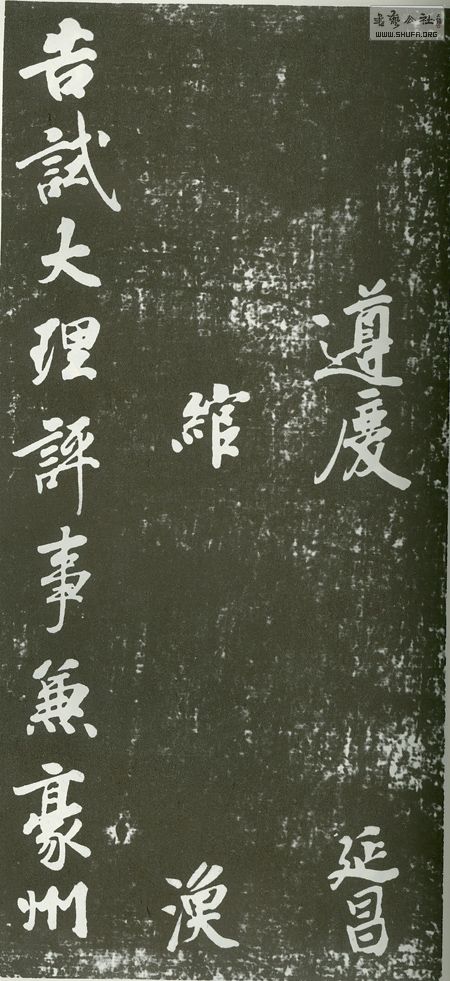 書藝公社
WWW.SHUFA.ORG
遵慶 延昌
綰 渙
告試大理評事兼豪州